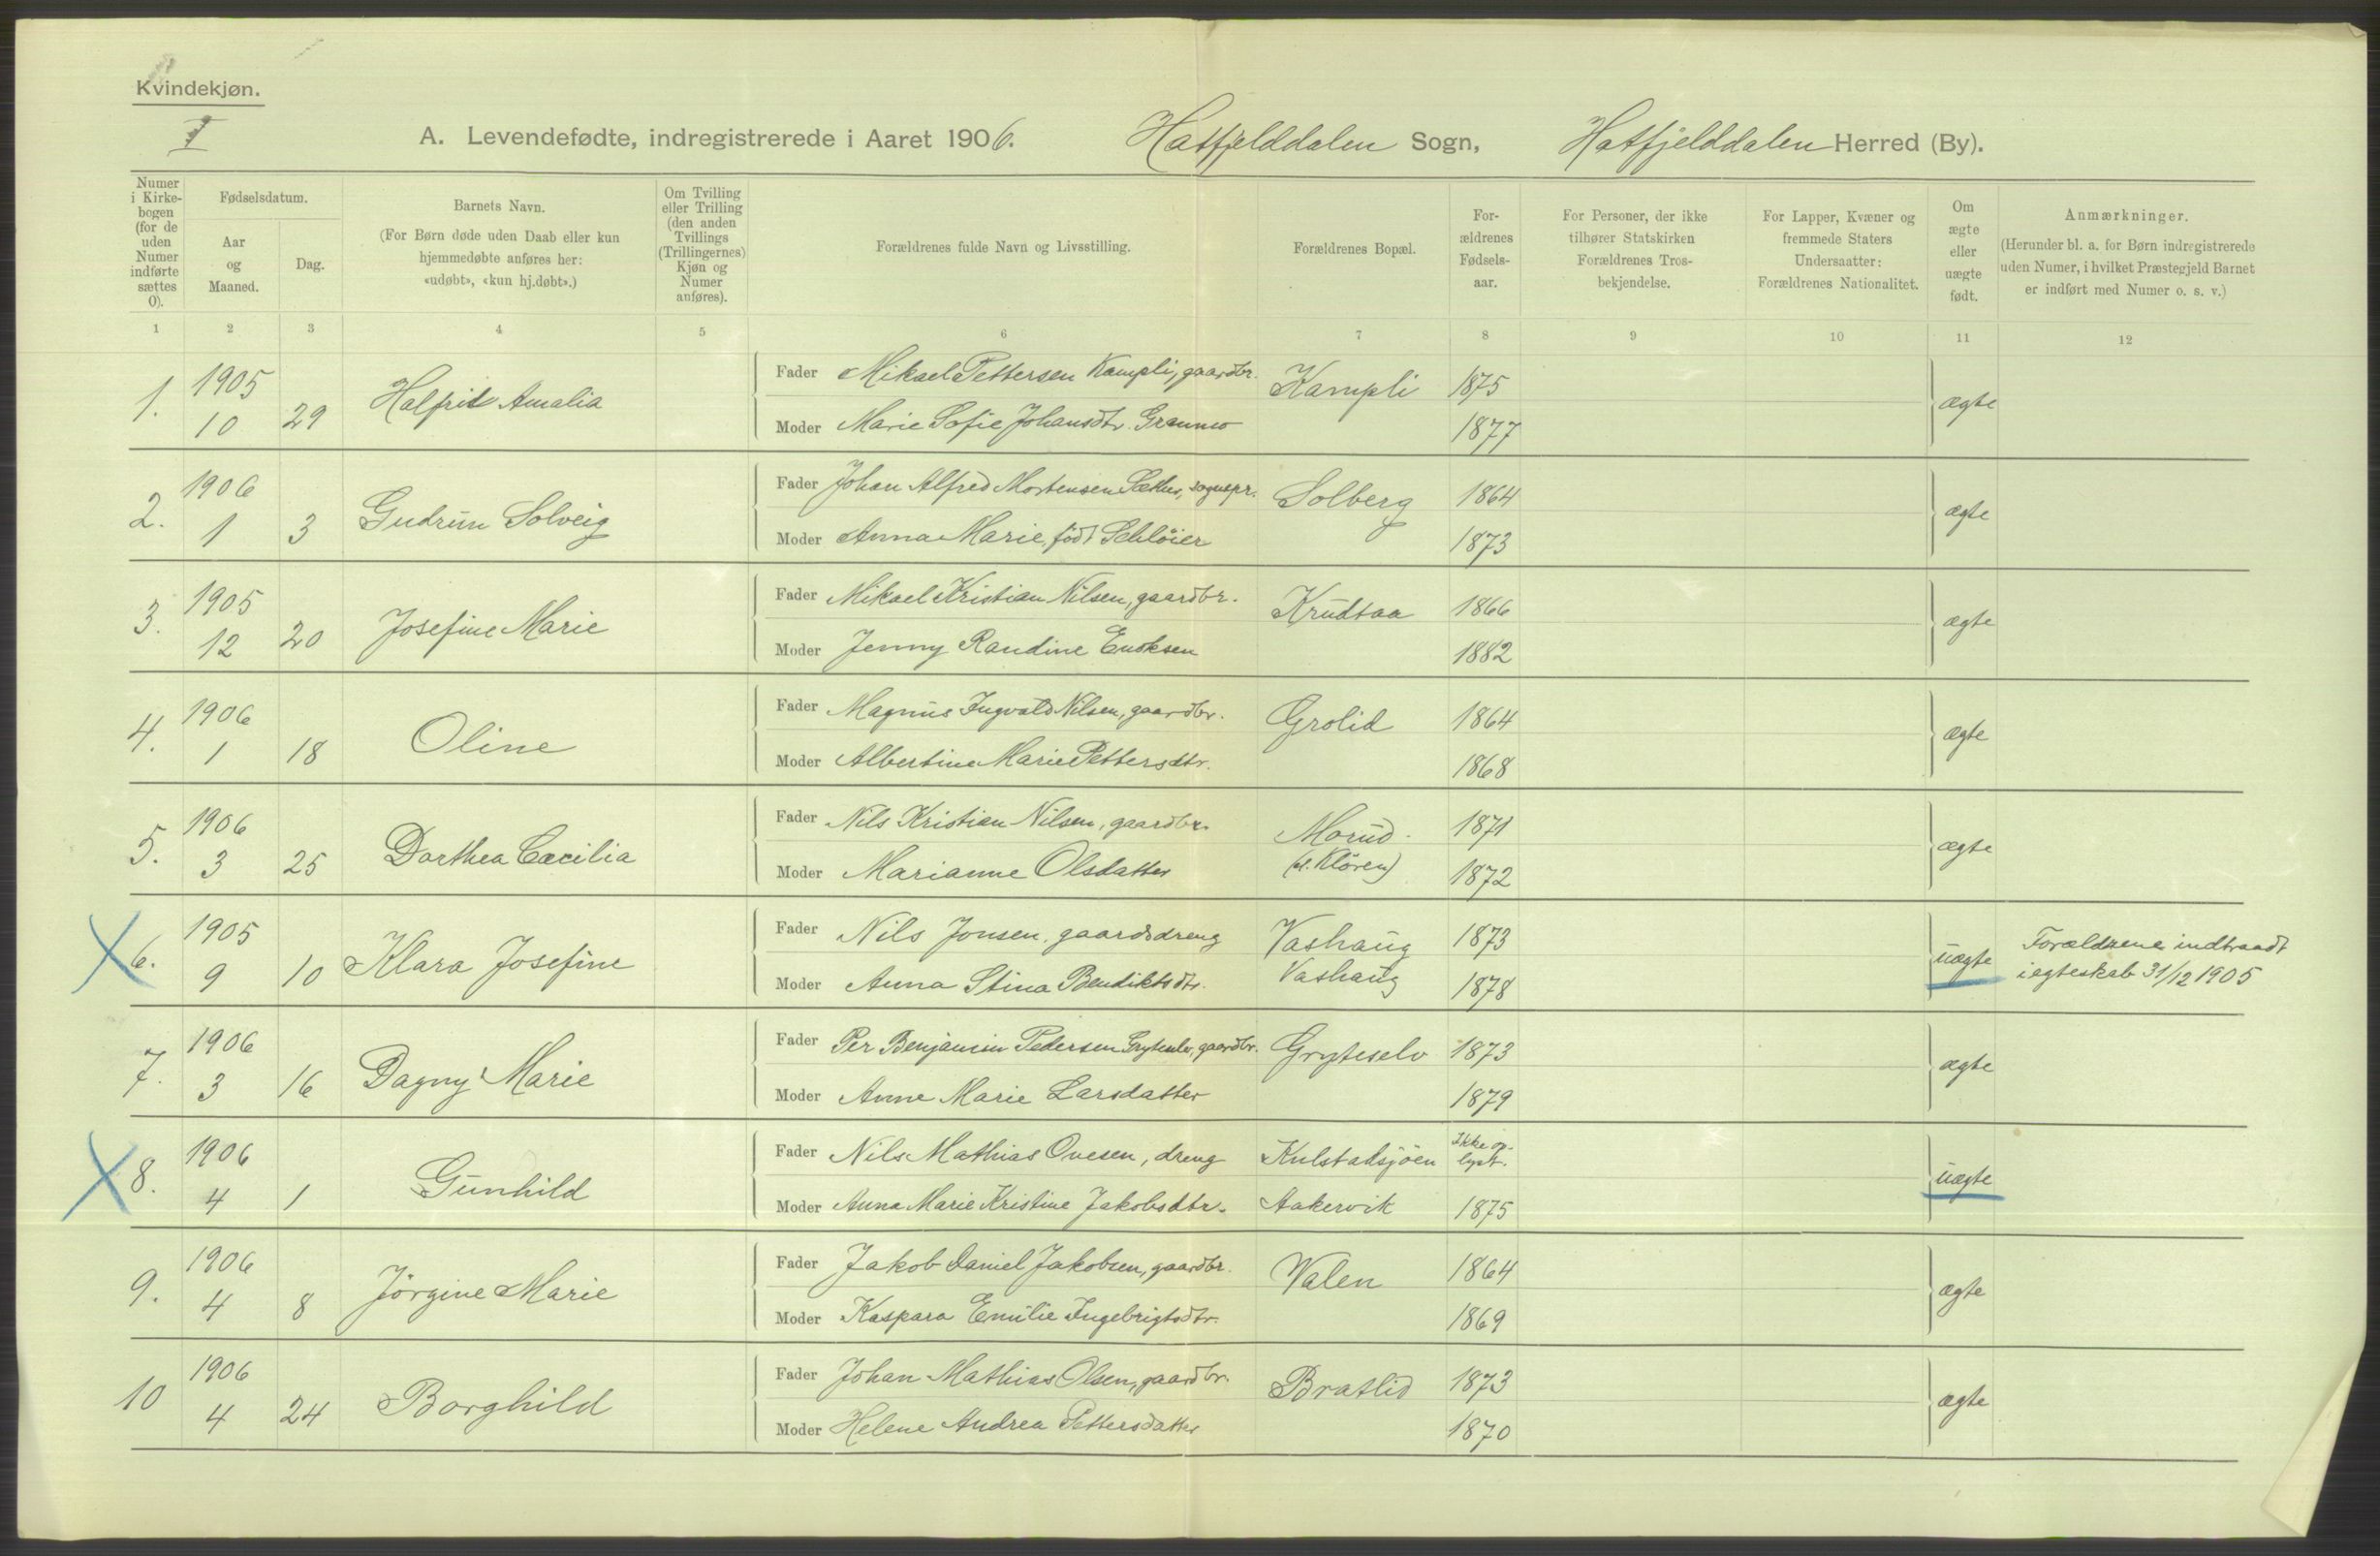 Kvindekjøn.
I
A. Levendefødte, indregistrerede i Aaret 1906. Hatfjelddalen Sogn, Hatfjelddalen Herred (By).
Numer i Kirkebogen (for de uden Numer indførte sættes 0).
Fødselsdatum.
Aar og Maaned.
Dag.
Barnets Navn.
(For Børn døde uden Daab eller kun
hjemmedøbte anføres her:
«udøbt», «kun hj.døbt».)
Om Tvilling
eller Trilling
(den anden
Tvillings
(Trillingernes)
Kjøn og
Numer
anføres).
Forældrenes fulde Navn og Livsstilling.
Forældrenes Bopæl.
For-
ældrenes
Fødsels-
aar.
For Personer, der ikke
tilhører Statskirken
Forældrenes Tros-
bekjendelse.
For Lapper, Kvæner og
fremmede Staters
Undersaatter:
Forældrenes Nationalitet.
Om
ægte
eller
uægte
født.
Anmærkninger.
(Herunder bl. a. for Børn indregistrerede
uden Numer, i hvilket Præstegjeld Barnet
er indført med Numer o. s. v.)
1 2 3 4 5 6 7 8 9 10 11 12
1. 1905 10 29 Halfrid Amalia
Fader Mikael Pettersen Kampli, gaardbr. Kampli 1875 ægte
Moder Marie Sofie Johansdtr. Granmo 1877
2. 1906 1 3 Gudrun Solveig
Fader Johan Alfred Mortensen Sæther, sognepr. Solberg 1864 ægte
Moder Anna Marie, født Schlöier 1873
3. 1905 12 20 Josefine Marie
Fader Mikael Kristian Nilsen, gaardbr. Krudtaa 1866 ægte
Moder Jenny Randine Enoksen 1882
4. 1906 1 18 Oline
Fader Magnus Ingvald Nilsen, gaardbr. Grolid 1864 ægte
Moder Albertine Marie Pettersdtr. 1868
5. 1906 3 25 Dorthea Cæcilia
Fader Nils Kristian Nilsen, gaardbr. Morud. 1871 ægte
Moder Marianne Olsdatter (Klören) 1872
6. 1905 9 10 Klara Josefine
Fader Nils Jonsen, gaardsdreng Vashaug 1873 uægte Forældrene indtraadt
Moder Anna Stina Bendiktsdtr. Vashaug 1878 i egteskab 31/12 1905
7. 1906 3 16 Dagny Marie
Fader Per Benjamin Pedersen Gryteselv, gaardbr. Gryteselv 1873 ægte
Moder Anne Marie Larsdatter 1879
8. 1906 4 1 Gunhild
Fader Nils Mathias Ovesen, dreng Kulstadsjöen Ikke op-
lyst. uægte
Moder Anna Marie Kristine Jakobsdtr. Aakervik 1875
9. 1906 4 8 Jörgine Marie
Fader Jakob Daniel Jakobsen, gaardbr. Valen 1864 ægte
Moder Kaspara Emilie Ingebrigtsdtr. 1869
10 1906 4 24 Borghild
Fader Johan Mathias Olsen, gaardbr. Bratlid 1873 ægte
Moder Helene Andrea Pettersdatter 1870